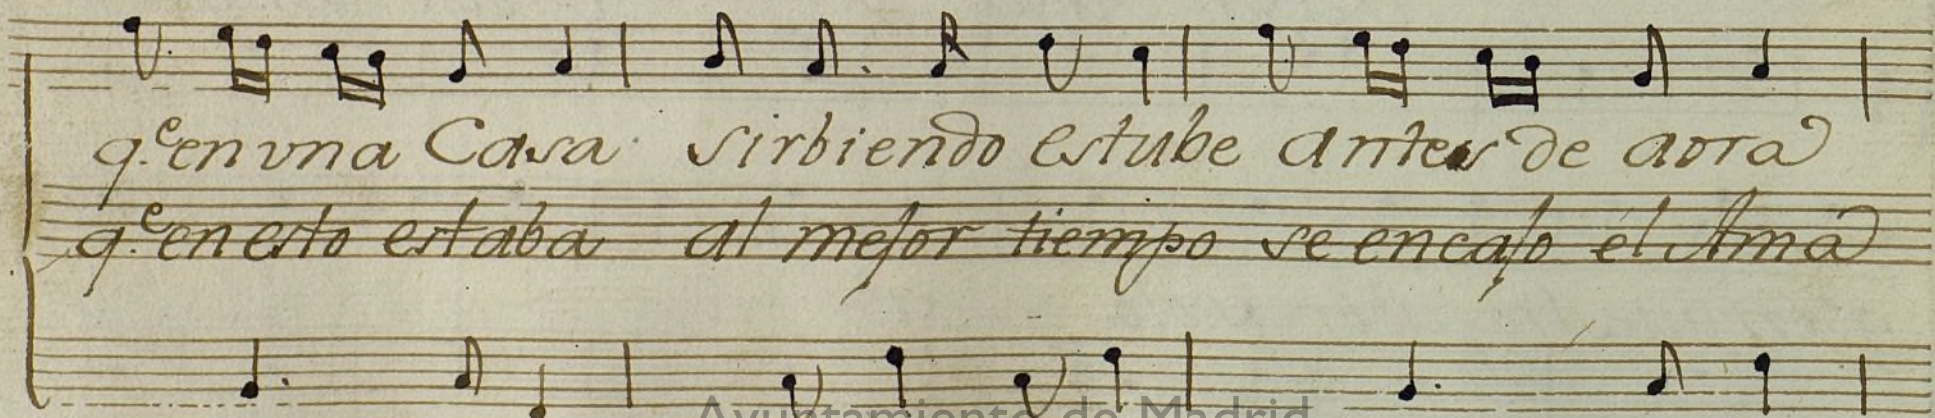 q.e en vna Casa sirbiendo estube antes de aora
q.e en esto estaba al mejor tiempo se encajo el Ama
Ayuntamiento de Madrid